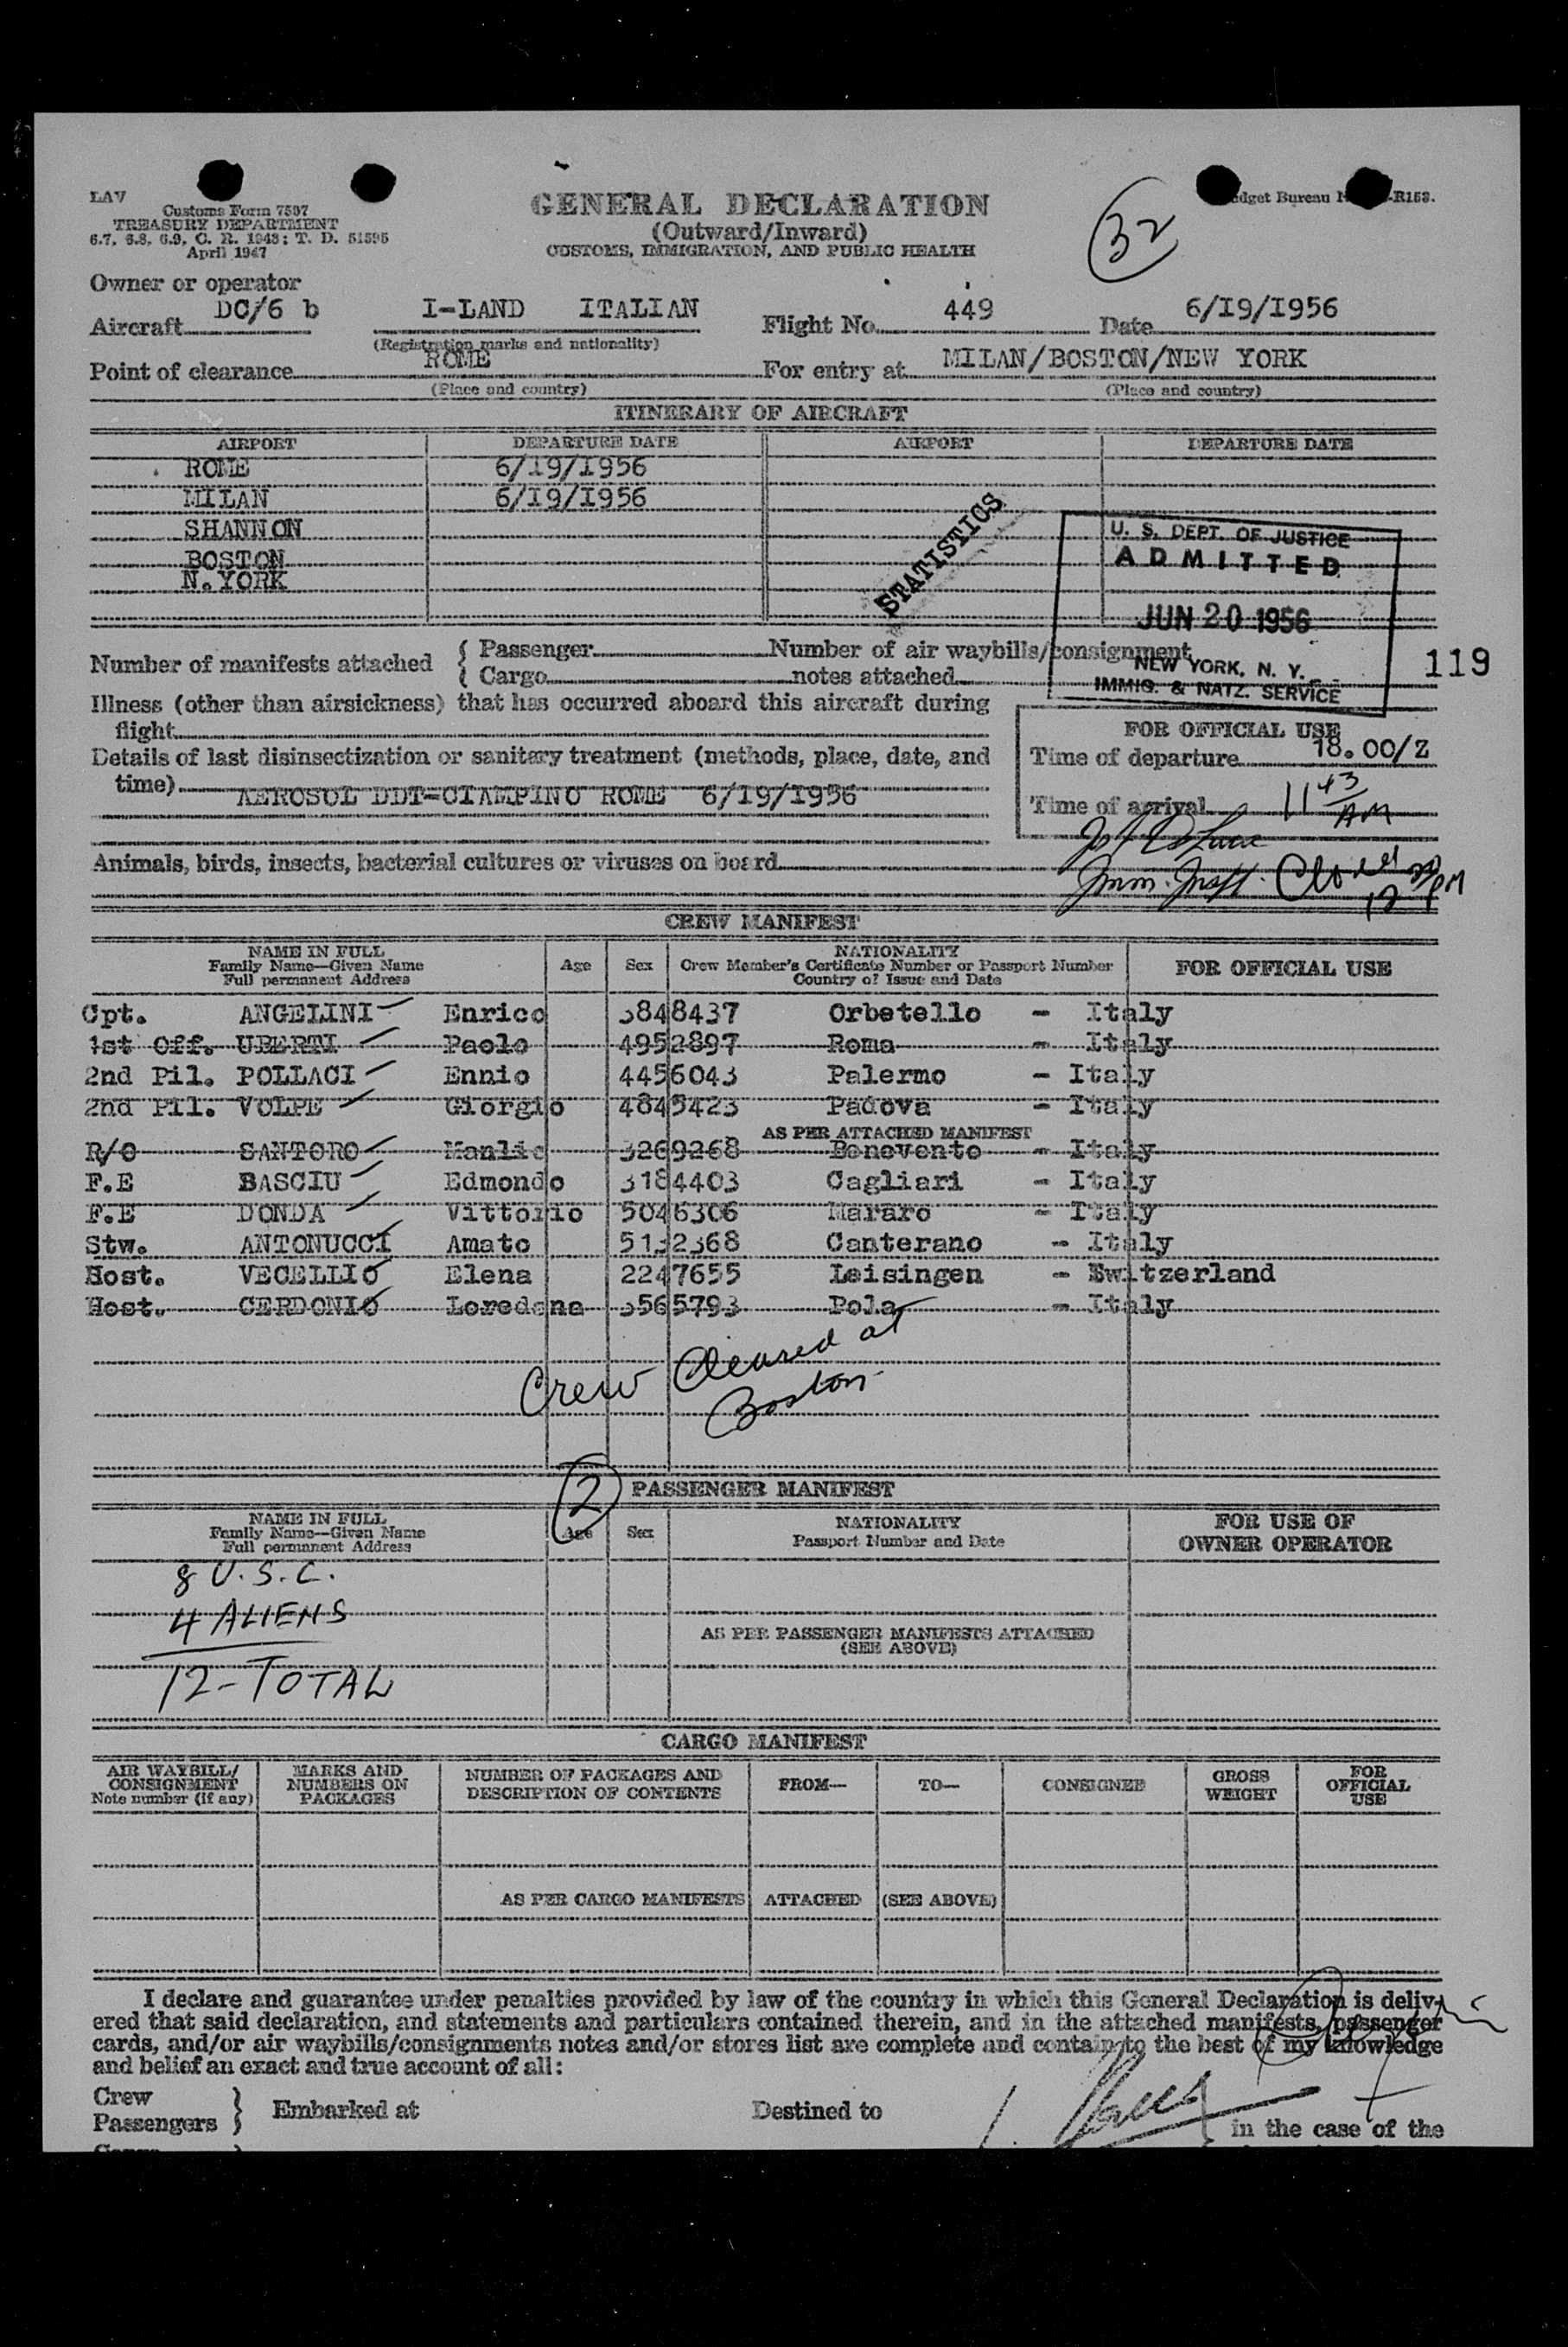 LAV
Customs Form 7507
TREASURY DEPARTMENT
6.7, 6.8, 6.9, C. R. 1943; T. D. 51595
April 1947
GENERAL DECLARATION
(Outward/Inward)
CUSTOMS, IMMIGRATION, AND PUBLIC HEALTH
32
Budget Bureau -R153.
Owner or operator
Aircraft DC/6 b I-LAND ITALIAN Flight No. 449 Date 6/I9/I956
(Registration marks and nationality)
Point of clearance ROME For entry at MILAN/BOSTON/NEW YORK
(Place and country) (Place and country)
ITINERARY OF AIRCRAFT
AIRPORT DEPARTURE DATE AIRPORT DEPARTURE DATE
ROME 6/19/I956
MILAN 6/I9/I956
SHANNON
BOSTON
N.YORK
STATISTICS
U. S. DEPT. OF JUSTICE
ADMITTED
JUN 20 1956
NEW YORK, N. Y.
IMMIG. & NATZ. SERVICE
119
Number of manifests attached { Passenger Number of air waybills/consignment
{ Cargo notes attached
Illness (other than airsickness) that has occurred aboard this aircraft during
flight
Details of last disinsectization or sanitary treatment (methods, place, date, and
time) AEROSOL DDT-CIAMPINO ROME 6/I9/I956
FOR OFFICIAL USE
Time of departure 18.00/Z
Time of arrival 11 43 AM
Animals, birds, insects, bacterial cultures or viruses on board
CREW MANIFEST
NAME IN FULL
Family Name—Given Name
Full permanent Address
Age Sex
NATIONALITY
Crew Member's Certificate Number or Passport Number
Country of Issue and Date
FOR OFFICIAL USE
Cpt. ANGELINI Enrico 3848437 Orbetello - Italy
1st Off. UBERTI Paolo 4952897 Roma - Italy
2nd Pil. POLLACI Ennio 4456043 Palermo - Italy
2nd Pil. VOLPE Giorgio 4845423 Padova - Italy
AS PER ATTACHED MANIFEST
R/O SANTORO Manlio 3269268 Benevento - Italy
F.E BASCIU Edmondo 3184403 Cagliari - Italy
F.E DONDA Vittorio 5046306 Mararo - Italy
Stw. ANTONUCCI Amato 5132368 Canterano - Italy
Host. VECELLIO Elena 2247655 Leisingen - Switzerland
Host. CERDONIO Loredana 3565793 Pola - Italy
Crew Cleared at
Boston
2
PASSENGER MANIFEST
NAME IN FULL
Family Name—Given Name
Full permanent Address
Age Sex
NATIONALITY
Passport Number and Date
FOR USE OF
OWNER OPERATOR
8 U.S.C.
4 ALIENS
12-TOTAL
AS PER PASSENGER MANIFESTS ATTACHED
(SEE ABOVE)
CARGO MANIFEST
AIR WAYBILL/
CONSIGNMENT
Note number (if any)
MARKS AND
NUMBERS ON
PACKAGES
NUMBER OF PACKAGES AND
DESCRIPTION OF CONTENTS
FROM—
TO—
CONSIGNEE
GROSS
WEIGHT
FOR
OFFICIAL
USE
AS PER CARGO MANIFESTS ATTACHED (SEE ABOVE)
I declare and guarantee under penalties provided by law of the country in which this General Declaration is deliv-
ered that said declaration, and statements and particulars contained therein, and in the attached manifests, passenger
cards, and/or air waybills/consignments notes and/or stores list are complete and contain to the best of my knowledge
and belief an exact and true account of all:
Crew
Passengers } Embarked at Destined to in the case of the